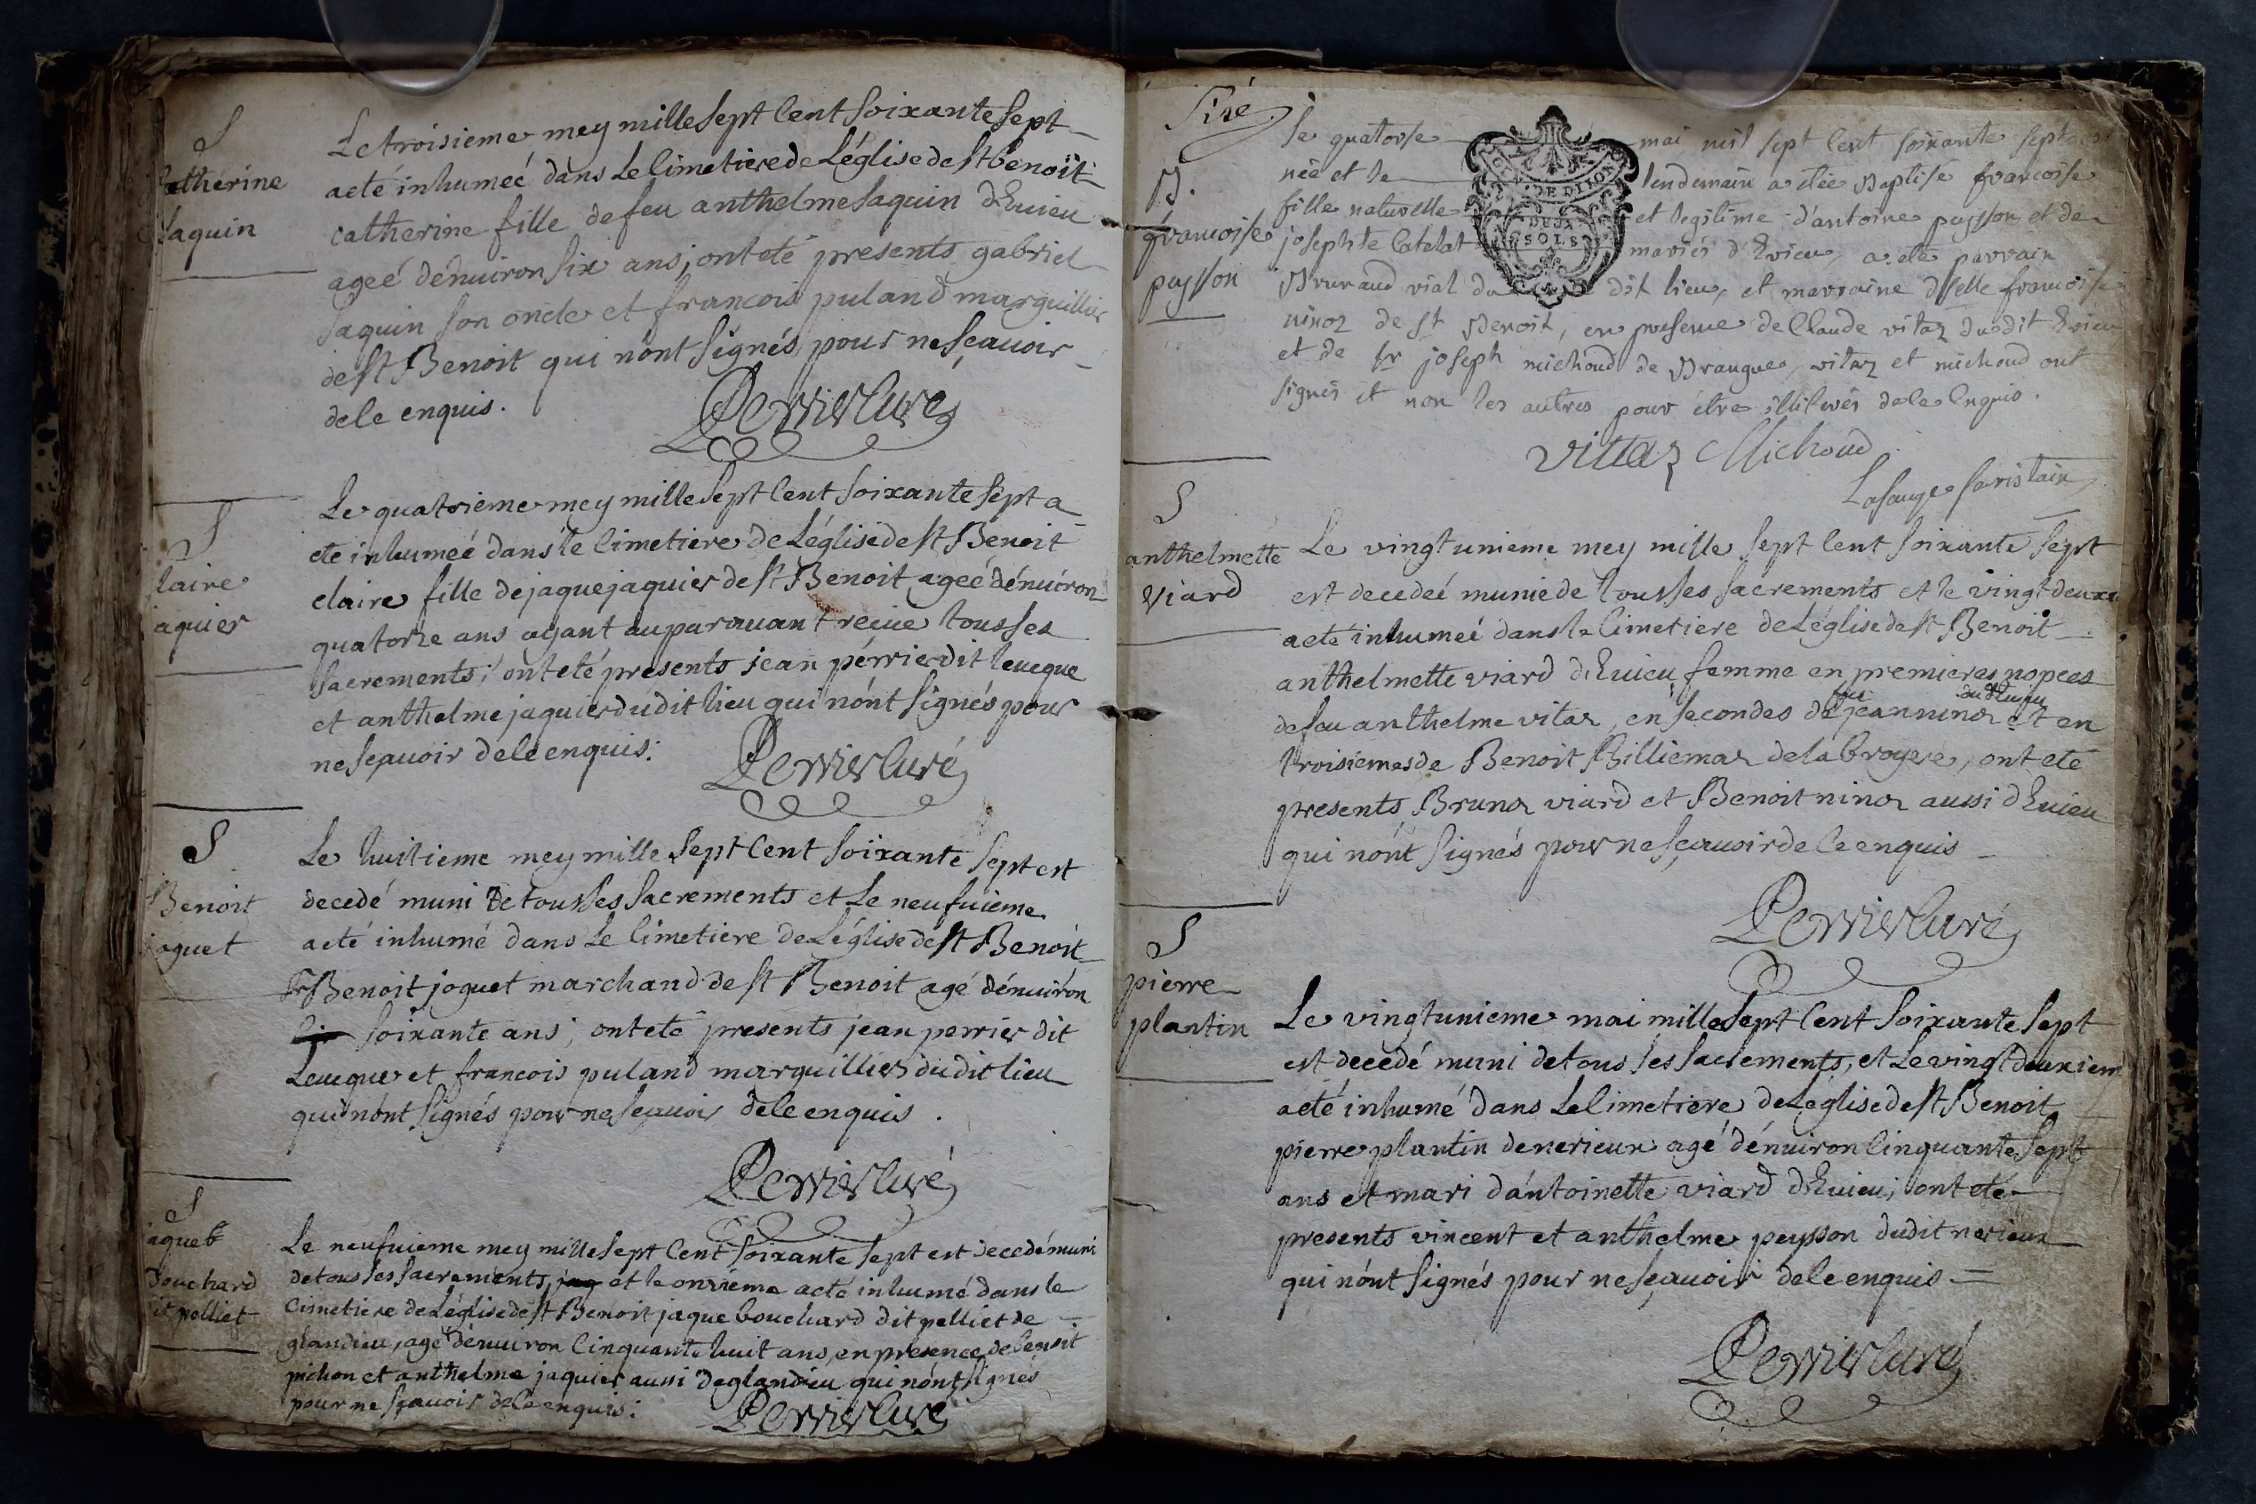 S
Catherine
Saquin
Le troisieme mey mille sept Cent soixante sept
a eté inhumeé dans Le Cimetiere de L'église de st benoit
catherine fille de feu anthelme saquin d'Evieu
ageé d'énuiron six ans, ont eté presents gabriel
saquin son oncle et francois puland marguillier
de st Benoit qui n'ont signés pour ne sçauoir
de le enquis.
Perrier Curé
S
claire
jaquier
Le quatrieme mey mille sept Cent soixante sept a
ete inhumeé dans le Cimetiere de L'église de st Benoit
claire fille de jaque jaquier de st Benoit ageé d'énuiron
quatorze ans ayant auparauant reçue tous ses
sacrements; ont eté presents jean pérrier dit leueque
et anthelme jaquier dudit lieu qui n'ont signés pour
ne sçauoir de le enquis.
Perrier Curé
S
Benoit
joguet
Le huitieme mey mille sept Cent soixante sept est
decedé muni de tous ses sacrements et Le neufuieme
a eté inhumé dans Le Cimetiere de L'église de st Benoit
sr Benoit joguet marchand de st Benoit agé d'énuiron
soixante ans; ont eté presents jean perrier dit
Leueque et francois puland marguillier dudit lieu
qui n'ont signés pour ne sçauoir de le enquis.
Perrier Curé
S
jaque b
bouchard
dit pelliet
Le neufuieme mey mille sept Cent soixante sept est decedé muni
de tous ses sacrements, jaq et le onzieme a eté inhumé dans le
Cimetiere de L'église de st Benoit jaque bouchard dit pelliet de
glandieu, agé d'énuiron Cinquante huit ans, en presence de benoit
pichon et anthelme jaquier aussi de glandieu qui n'ont signés
pour ne sçauoir de le enquis.
Perrier Curé
B.
francoise
peysson
le quatorse mai mil sept Cent soixante sept est
née et le lendemain a etée Baptisé francoise
fille naturelle et legitime d'antoine peysson et de
josephte Catelat mariés d'Evieu, a eté parrain
Brunaud vial du dit lieu, et marraine dlle francoise
ninoz de st Benoit, en presence de Claude vitaz du dit Evieu
et de sr joseph michoud de Brangues, vitaz et michoud ont
signés et non les autres pour etre illiterés de le Enquis.
GEN. DE DIJON
DEUX
SOLS
vittaz Michoud
S
anthelmette
viard
Le vingt unieme mey mille sept Cent soixante sept
est decedeé munie de tous ses sacrements et le vingt deuxi
a eté inhumeé dans le Cimetiere de L'église de st Benoit
anthelmette viard d'Euieu femme en premieres nopces
de feu anthelme vitaz, en secondes de feu jean ninoz du d Euieu et en
troisiemes de Benoit Billiemaz de la bruyere, ont eté
presents Bruno viard et Benoit ninoz aussi d'Euieu
qui n'ont signés pour ne sçauoir de le enquis
Perrier Curé
S
pierre
plantin
Le vingt unieme mai mille sept Cent soixante sept
est decedé muni de tous ses sacrements, et Le vingt deuxiem
a eté inhumé dans Le Cimetiere de L'église de st Benoit
pierre plantin de nerieux agé d'énuiron Cinquante sept
ans et mari d'antoinette viard d'Euieu; ont eté
presents vincent et anthelme peysson dudit nerieux
qui n'ont signés pour ne sçauoir de le enquis
Perrier Curé